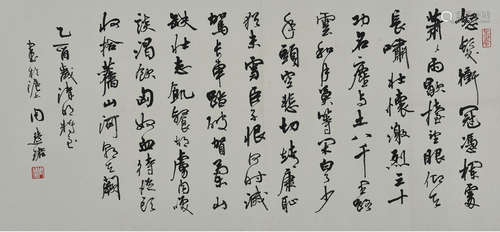 怒髮衝冠憑欄處
蕭蕭雨歇擡望眼仰天
長嘯壯懷激烈三十
功名塵與土八千里路
雲和月莫等閒白了少
年頭空悲切靖康恥
猶未雪臣子恨何時滅
駕長車踏破賀蘭山
缺壯志飢餐胡虜肉笑
談渴飲匈奴血待從頭
收拾舊山河朝天闕
乙酉歲清明
周慧珺